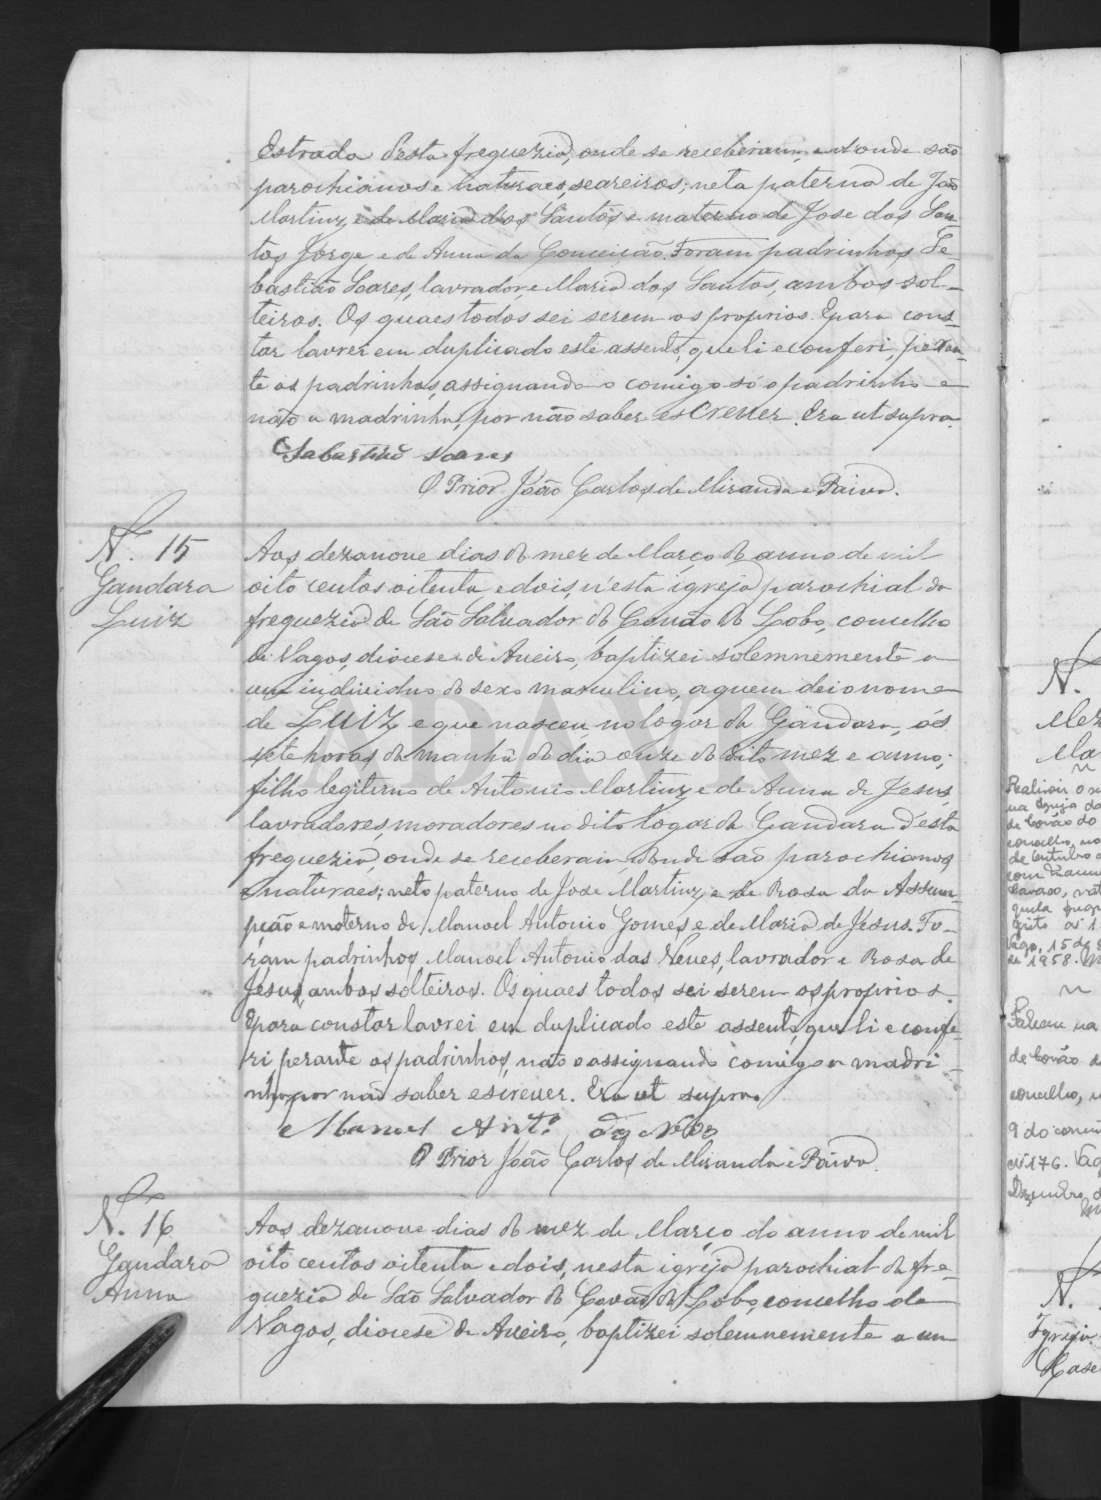 Estrada d'esta freguezia, onde se receberam, e d'onde são
parochianos e naturaes, seareiros; neta paterna de João
Martins, e de Maria dos Santos e materna de Jose dos San-
tos Jorge e de Anna da Conceição. Foram padrinhos Se-
bastião Soares, lavrador, e Maria dos Santos, ambos sol-
teiros. Os quaes todos sei serem os proprios. E para cons-
tar lavrei em duplicado este assento, que li e conferi, peran-
te os padrinhos, assignando-o comigo só o padrinho e
não a madrinha, por não saber escrever. Era ut supra.
Sabastião soares
O Prior João Carlos de Miranda e Paiva.
N. 15
Gandara
Luiz
Aos dezanove dias do mez de Março do anno de mil
oito centos oitenta e dois, n'esta igreja parochial da
freguezia de São Salvador do Covão do Lobo, concelho
de Vagos, diocese de Aveiro, baptizei solemnemente a
um individuo do sexo masculino, a quem dei o nome
de LUIZ e que nasceu no logar da Gandara, ás
sete horas da manhã do dia onze do dito mez e anno;
filho legitimo de Antonio Martins, e de Anna de Jesus,
lavradores, moradores no dito logar da Gandara d'esta
freguezia, onde se receberam, d'onde são parochianos
e naturaes; neto paterno de Jose Martins, e de Rosa da Assum-
pção e materno de Manoel Antonio Gomes e de Maria de Jesus. Fo-
ram padrinhos Manoel Antonio das Neves, lavrador e Rosa de
Jesus, ambos solteiros. Os quaes todos sei serem os proprios.
E para constar lavrei em duplicado este assento, que li e confe-
ri perante os padrinhos, não o assignando comigo a madri-
nha por não saber escrever. Era ut supra.
Manoel Ant.º das Neves
O Prior João Carlos de Miranda e Paiva.
N. 16
Gandara
Anna
Aos dezanove dias do mez de Março do anno de mil
oito centos oitenta e dois, nesta igreja parochial da fre-
guezia de São Salvador do Covão do Lobo, concelho de
Vagos, diocese de Aveiro, baptizei solemnemente a um
ADAVR
N.
Ma
na Igreja do
de Covão do
concelho, no
de Outubro
com
1958.
de Covão d
concelho,
9 do
Nº 176. Vag
Dezembro d
N.
Igreja